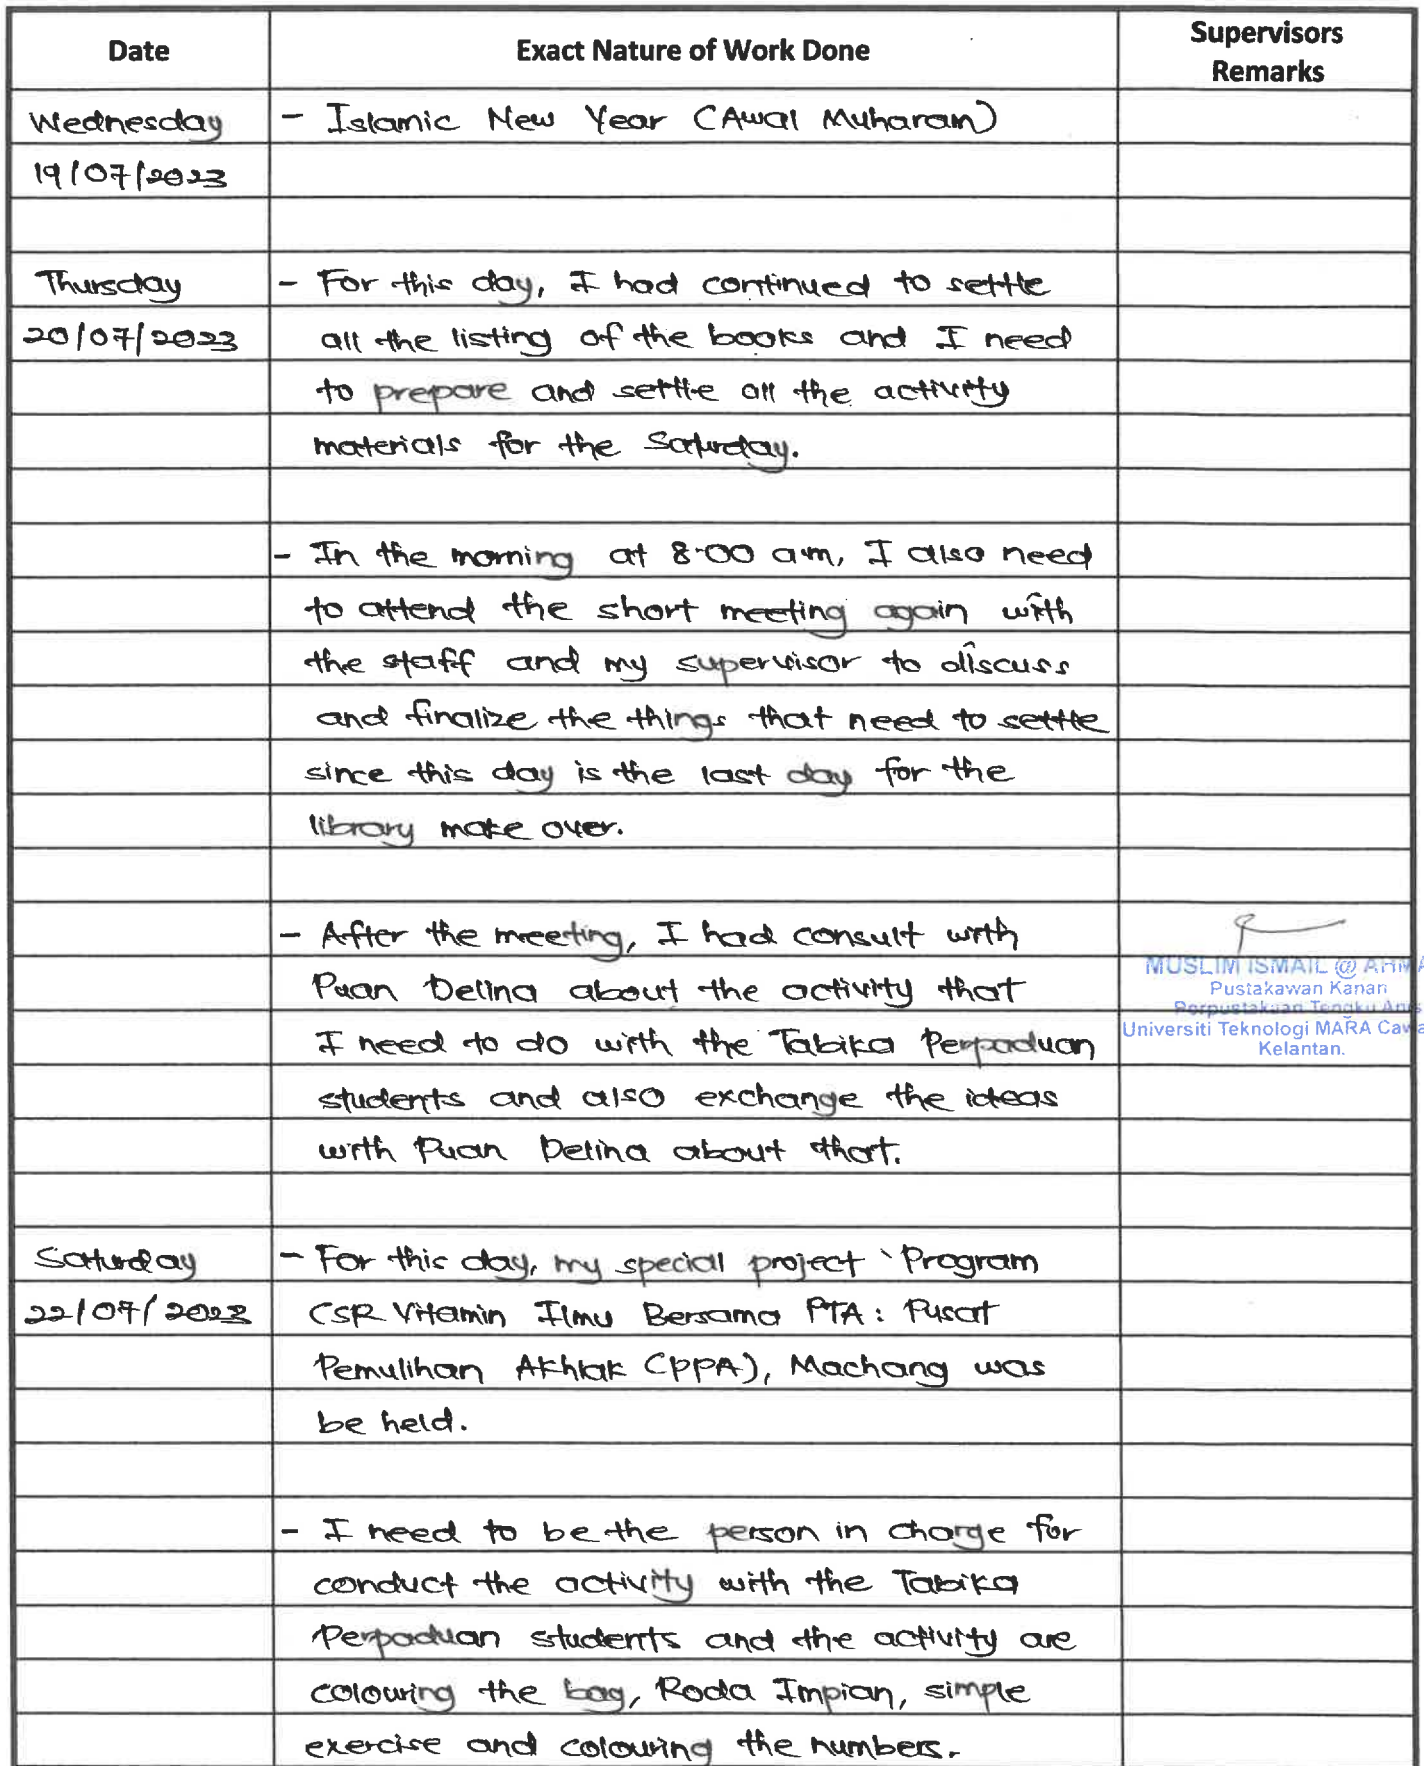 Date Exact Nature of Work Done Supervisors Remarks
Wednesday - Islamic New Year (Awal Muharam)
19/07/2023
Thursday - For this day, I had continued to settle
20/07/2023 all the listing of the books and I need
to prepare and settle all the activity
materials for the Saturday.
- In the morning at 8.00 am, I also need
to attend the short meeting again with
the staff and my supervisor to discuss
and finalize the things that need to settle
since this day is the last day for the
library make over.
- After the meeting, I had consult with
Puan Delina about the activity that
I need to do with the Tabika Perpaduan
students and also exchange the ideas
with Puan Delina about that.
MUSLIM ISMAIL @
Pustakawan Kanan
Perpustakaan Tengku
Universiti Teknologi MARA
Kelantan.
Saturday - For this day, my special project 'Program
22/07/2023 CSR Vitamin Ilmu Bersama PTA: Pusat
Pemulihan Akhlak (PPA), Machang was
be held.
- I need to be the person in charge for
conduct the activity with the Tabika
Perpaduan students and the activity are
colouring the bag, Roda Impian, simple
exercise and colouring the numbers.